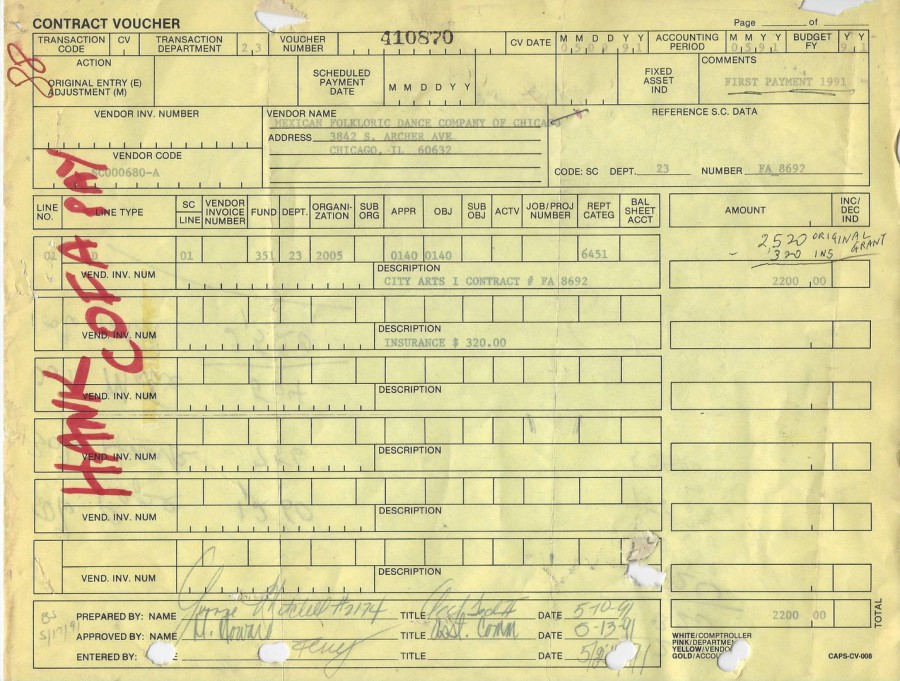 CONTRACT VOUCHER
Page ____ of ____
TRANSACTION CODE CV TRANSACTION DEPARTMENT 2 3 VOUCHER NUMBER 410870 CV DATE M M D D Y Y 0 5 0 9 1 ACCOUNTING PERIOD M M Y Y 0 5 9 1 BUDGET FY Y Y 9 1
88
ACTION
ORIGINAL ENTRY (E)
ADJUSTMENT (M)
SCHEDULED PAYMENT DATE M M D D Y Y
FIXED ASSET IND
COMMENTS
FIRST PAYMENT 1991
VENDOR INV. NUMBER
VENDOR NAME
MEXICAN FOLKLORIC DANCE COMPANY OF CHICAGO
ADDRESS 3842 S. ARCHER AVE
CHICAGO, IL 60632
REFERENCE S.C. DATA
VENDOR CODE
SC000680-A
CODE: SC DEPT. 23 NUMBER FA 8692
LINE NO. LINE TYPE SC LINE VENDOR INVOICE NUMBER FUND DEPT. ORGANI-ZATION SUB ORG APPR OBJ SUB OBJ ACTV JOB/PROJ NUMBER REPT CATEG BAL SHEET ACCT AMOUNT INC/DEC IND
2,520 ORIGINAL GRANT
- 320 INS
01 D 01 351 23 2005 0140 0140 6451
VEND. INV. NUM DESCRIPTION
CITY ARTS I CONTRACT # FA 8692 2200 00
VEND. INV. NUM DESCRIPTION
INSURANCE $ 320.00
VEND. INV. NUM DESCRIPTION
VEND. INV. NUM DESCRIPTION
VEND. INV. NUM DESCRIPTION
VEND. INV. NUM DESCRIPTION
HANK COCA
BS
5/17/91
PREPARED BY: NAME George Mitchell #2174 TITLE DATE 5-10-91
APPROVED BY: NAME H. Howard TITLE Asst. Comm DATE 5-13-91
ENTERED BY: TITLE DATE
2200 00 TOTAL
WHITE/COMPTROLLER
PINK/DEPARTMENT
YELLOW/VENDOR
GOLD/ACCOU
CAPS-CV-008